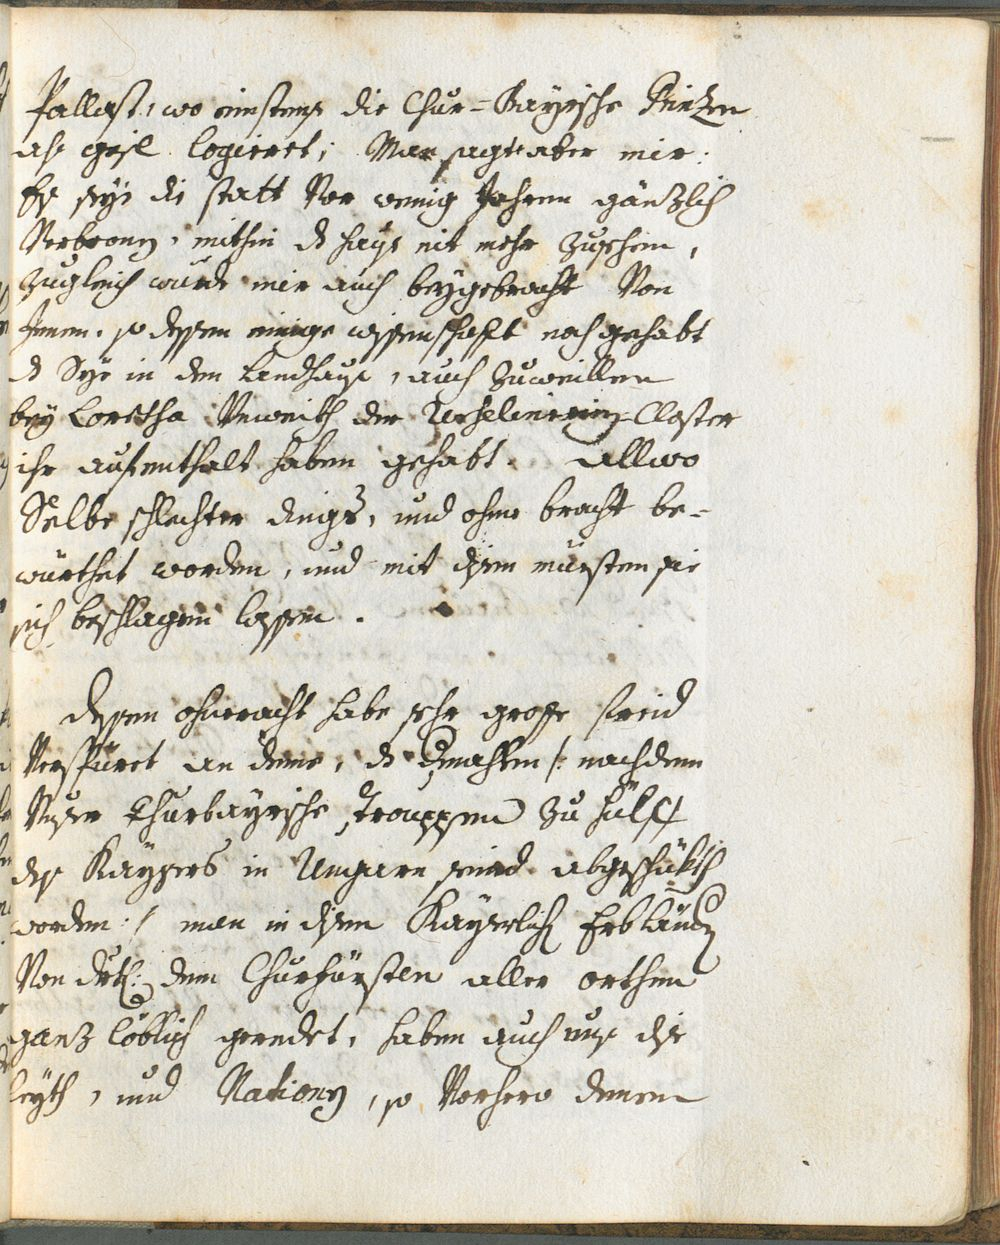 Pallast, wo einstens die Chur=Bayrische Prinzen
als gest logieret; Man sagte aber mir:
Es seye die statt Vor wenig Jahren gänzlich
Verbronnen, mithin ds haus nit mehr zusehen,
zugleich wurde mir auch beygebracht Von
Jenen, so dessen einige wissenschafft noch gehabt
ds Sye in dem Landhaus, auch zuweillen
bey Loretha Vnweith der Closter
ihr aufenthalt haben gehabt. allwo
Selbe schlechter dings, und ohne bracht be=
würthet worden, und mit disem müesten sie
sich beschlagen lassen.
dessen ohneracht habe sehr grosse freid
Verspüret an deme, ds /: nachdem
Unser Churbayrische Trouppen zu hülff
des Kaysers in Ungarn seind abgeschükht
worden :/ man in disen Kayserlich Erbländen
Von dem Churfürsten aller orthen
ganz löblich geredet, haben auch uns dise
leyth, und Nationen, so Vorhero denen